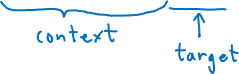 context
target